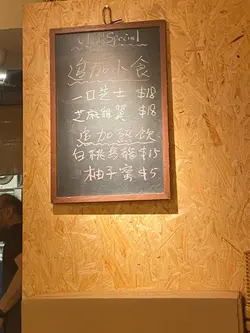 Special
追加小食
一口芝士 $18
芝麻雞翼 $18
追加飲
白桃烏龍 $15
柚子蜜 $5